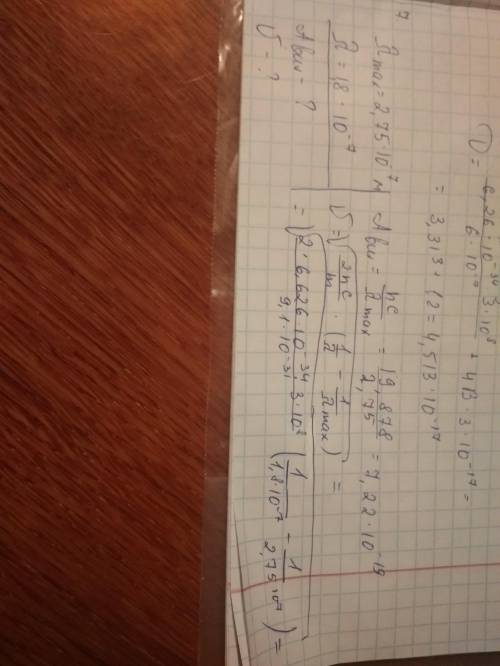 7
V = 6,26·10⁻³⁴ 3·10⁸ / 6·10⁻⁸ + 413·3·10⁻¹⁷ =
= 3,313 + 12 = 4,513·10⁻¹⁷
λmax = 2,75·10⁷ м
λ = 1,8·10⁻⁷
Aвых - ?
V - ?
Aвых = hc / λmax = 19 878 / 2,75 = 7,22·10⁻¹⁹
V = √(2hc / m · (1/λ - 1/λmax)) =
= √(2·6,626·10⁻³⁴·3·10⁸ / 9,1·10⁻³¹ (1 / 1,8·10⁻⁷ - 1 / 2,75·10⁷)) =